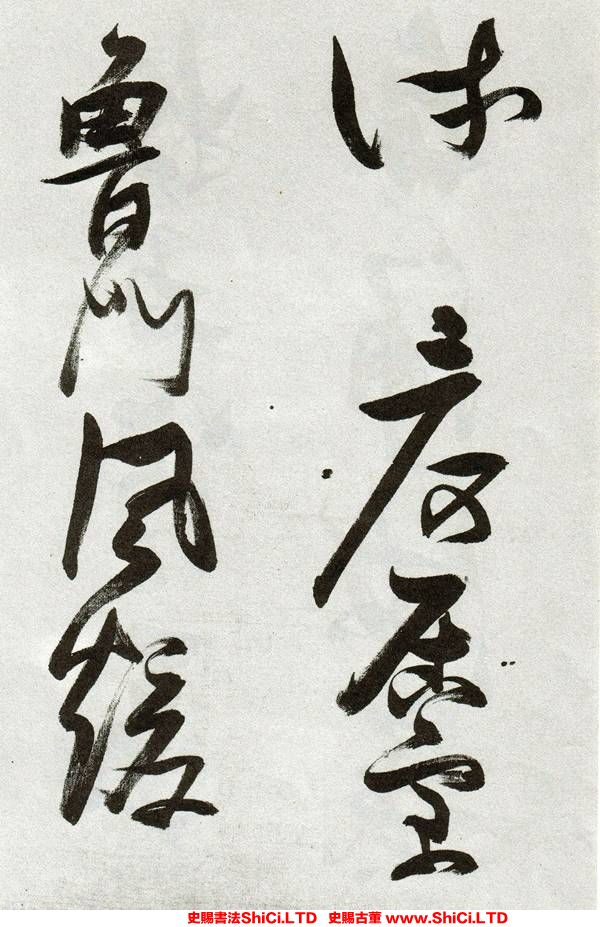 詩
居室
魯門風煖
史賜書法ShiCi.LTD 史賜古董 www.ShiCi.LTD